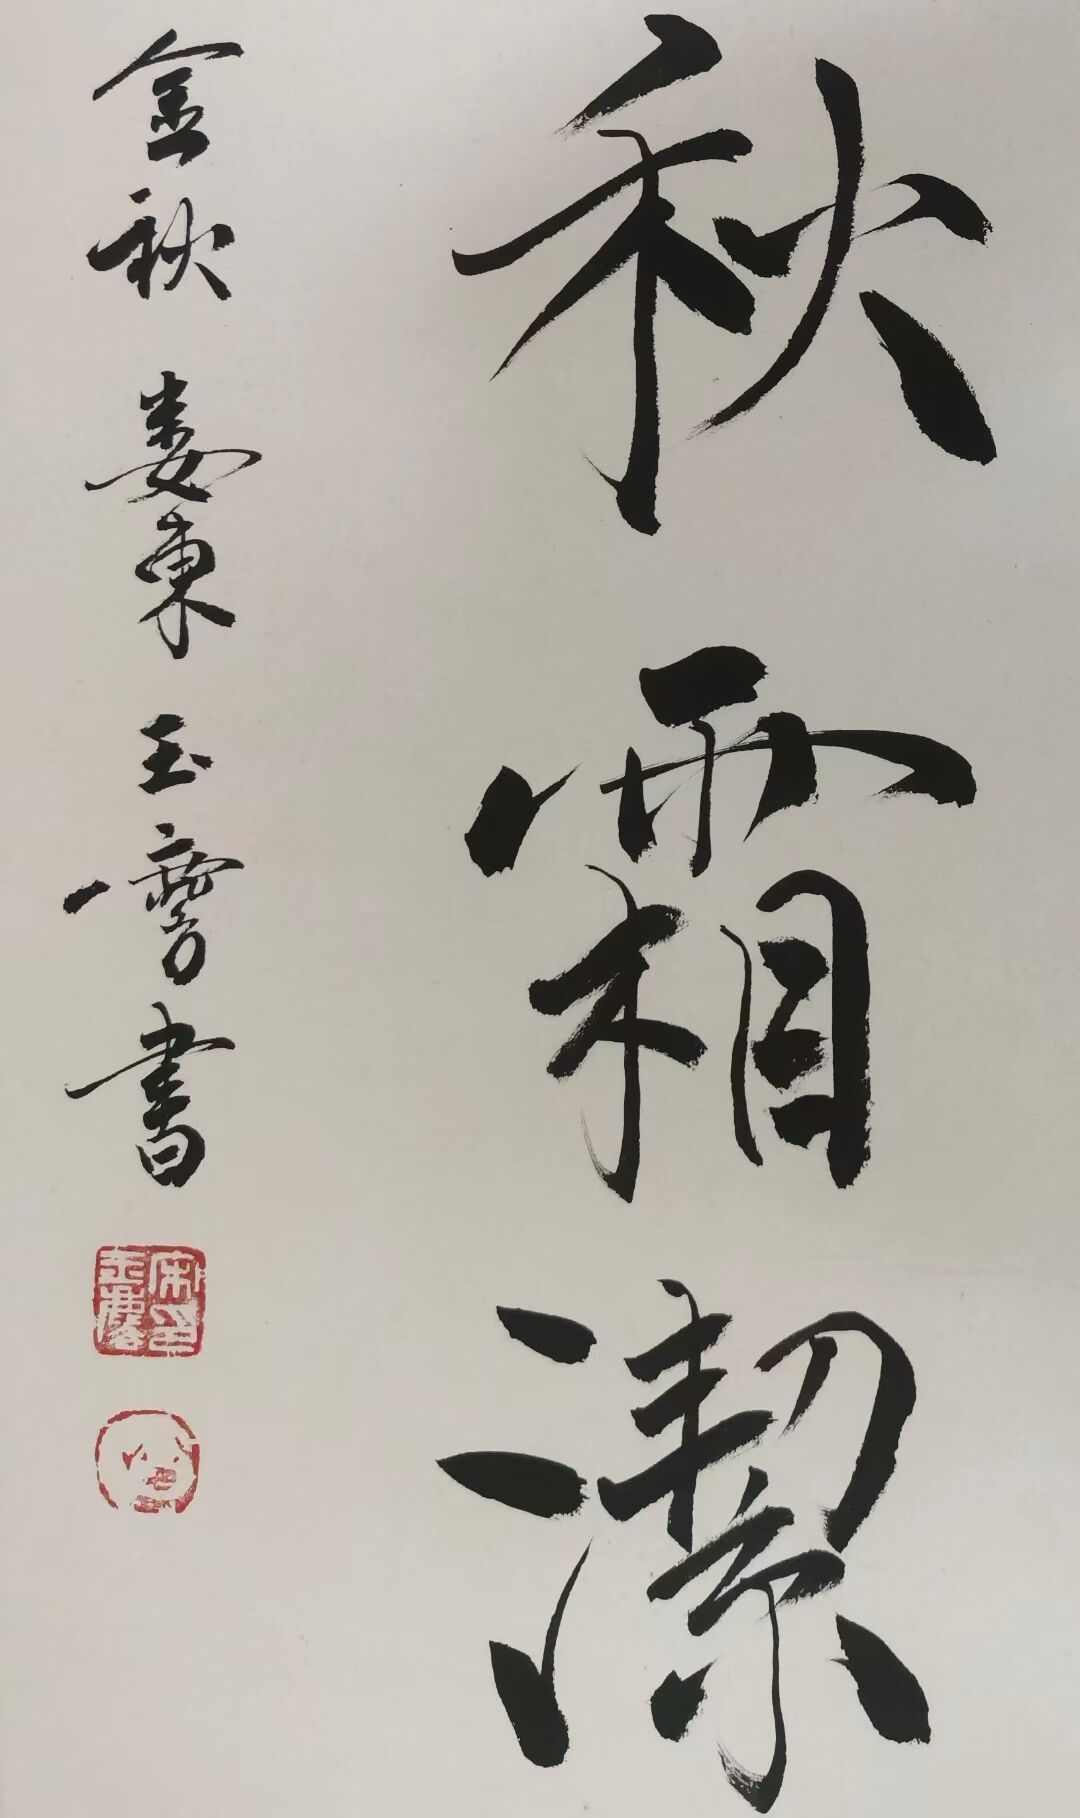 秋霜潔
金秋 婁東 玉麐書